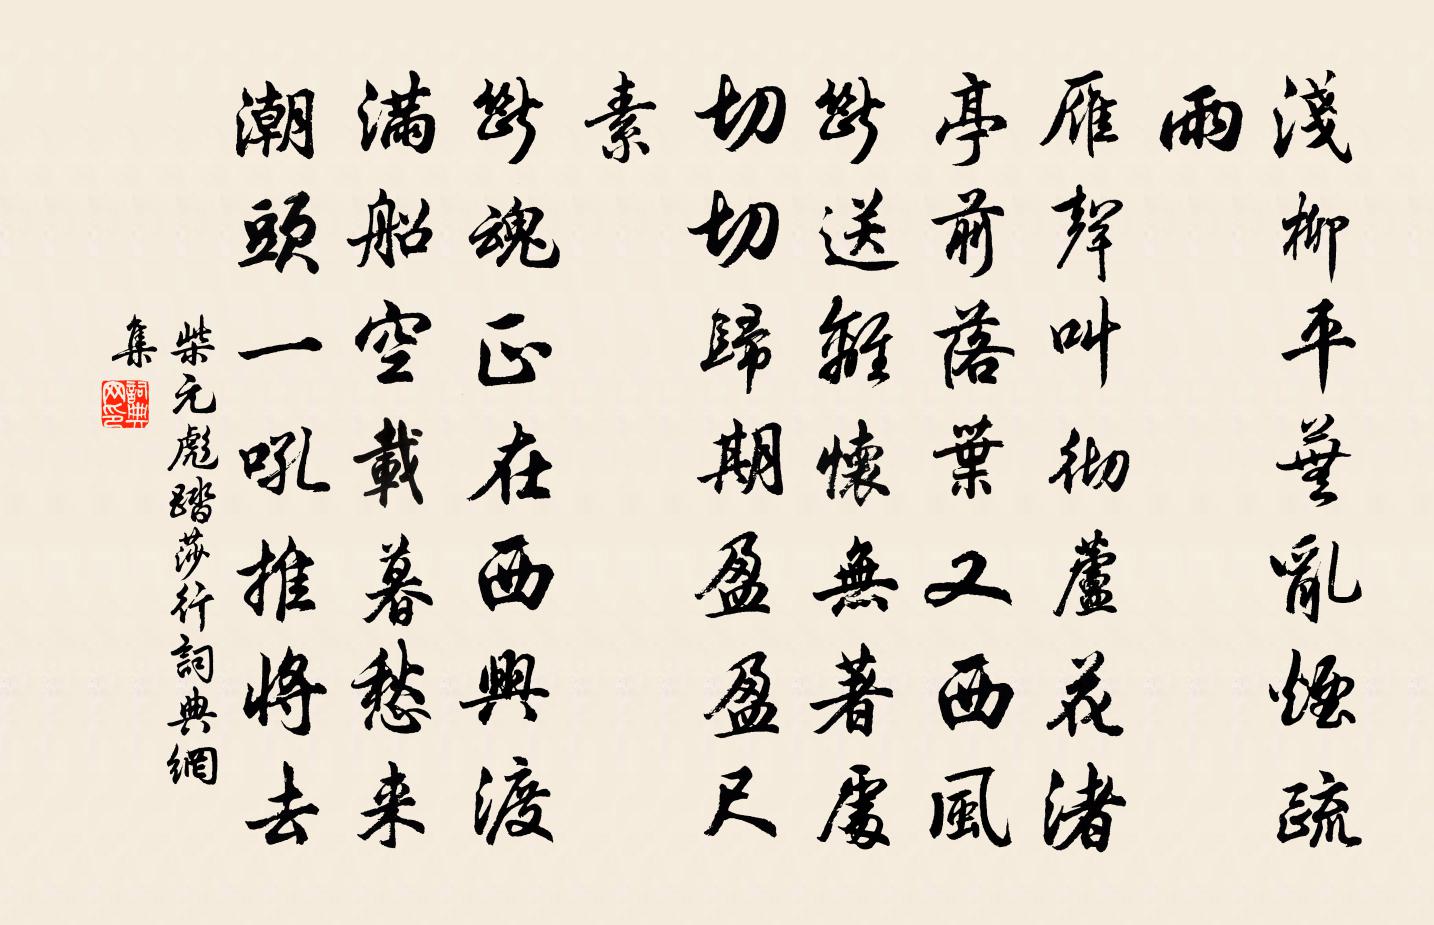 淺柳平蕪亂煙疏
雨
雁聲叫徹蘆花渚
亭前落葉又西風
斷送離懷無著處
切切歸期盈盈尺
素
斷魂正在西興渡
滿船空載暮愁来
潮頭一吼推將去
柴元彪踏莎行詞典網
集
詞典網印